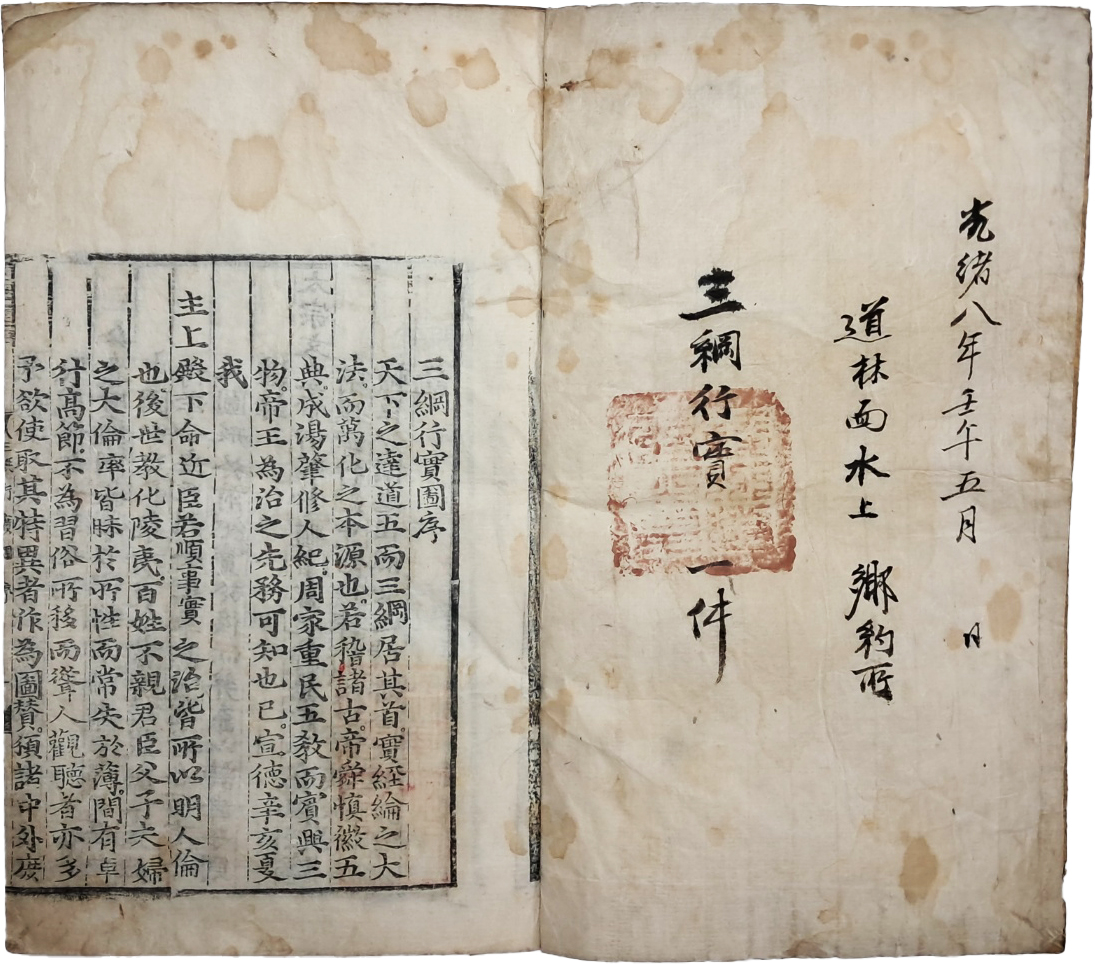 光緒八年壬午五月 日
道林面水上 鄉約所
三綱行實 一件
三綱行實圖序
天下之達道五而三綱居其首。實經綸之大
法。而萬化之本源也。若稽諸古。帝舜愼徽五
典。成湯肇修人紀。周家重民五敎而賓興三
物。帝王為治之先務可知也已。宣德辛亥夏
我
主上殿下命近臣若順事實之治皆所以明人倫
也。後世敎化陵夷。百姓不親君臣父子夫婦
之大倫率皆昧於所性而常失於薄。間有卓
行高節。不為習俗所移而聳人觀聽者亦多
予欲使取其特異者作為圖贊。頒諸中外。庶